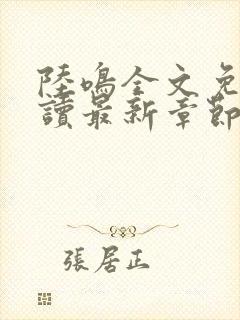 陸鳴全文免
讀最新章節
張居正